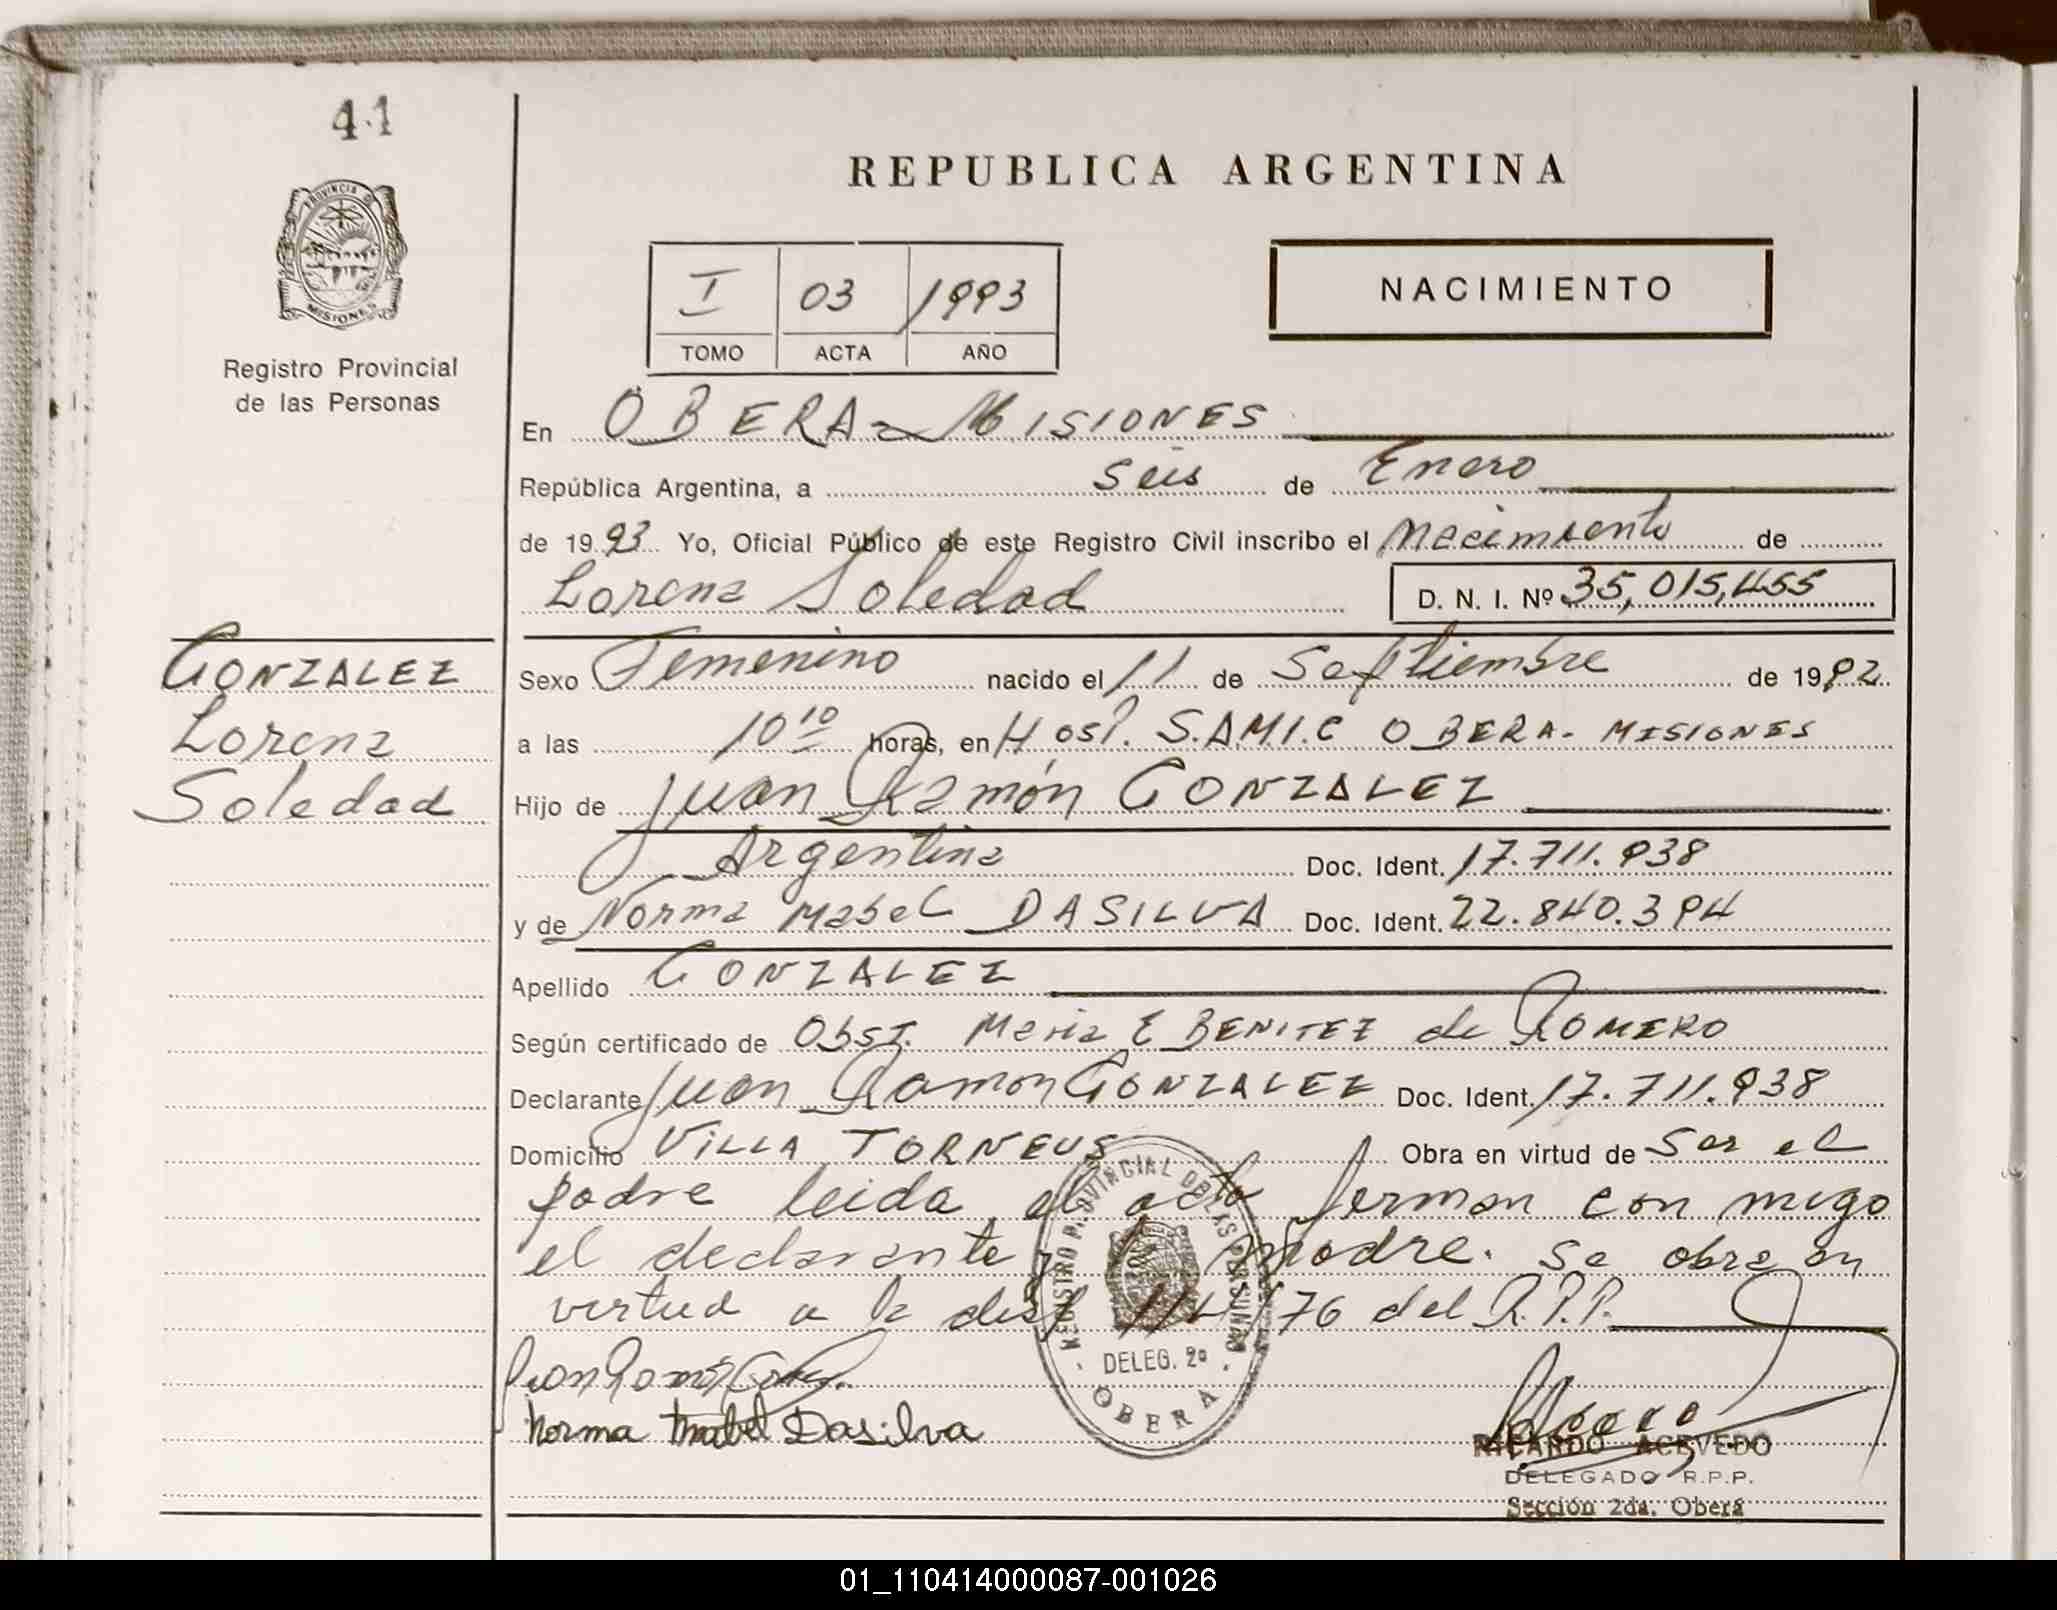 41
PROVINCIA D
MISIONES
Registro Provincial
de las Personas
REPUBLICA ARGENTINA
I 03 1993
TOMO ACTA AÑO
NACIMIENTO
En OBERA - MISIONES
República Argentina, a seis de Enero
de 1993 Yo, Oficial Público de este Registro Civil inscribo el Nacimiento de
Lorena Soledad D. N. I. Nº 35,015,455
GONZALEZ
Lorena
Soledad
Sexo Femenino nacido el 11 de Septiembre de 1992
a las 10 10 horas, en Hosp. S.A.M.I.C OBERA - MISIONES
Hijo de Juan Ramón GONZALEZ
Argentina Doc. Ident. 17.711.938
y de Norma Mabel DASILVA Doc. Ident. 22.840.394
Apellido GONZALEZ
Según certificado de Obst. Maria E BENITEZ de ROMERO
Declarante Juan Ramon GONZALEZ Doc. Ident. 17.711.938
Domicilio VILLA TORNEUS Obra en virtud de Ser el
padre leida el acta ferman con migo
el declarante y la madre. Se obra en
virtud a la disp 114/76 del R.P.P.
Norma Mabel Dasilva
REGISTRO PROVINCIAL DE LAS PERSONAS
DELEG. 2ª
OBERA
RICARDO ACEVEDO
DELEGADO R.P.P.
Sección 2da. Oberá
01_110414000087-001026